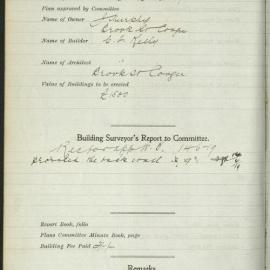 Plan approved by Committee
Name of Owner
Brook St Coogee
Name of Builder
Name of Architect
Brook St Coogee
Value of Buildings to be erected
£1500
Building Surveyor's Report to Committee.
provided the back wall is 9"
Report Book, folio
Plans Committee Minute Book, page
Building Fee Paid
Remarks